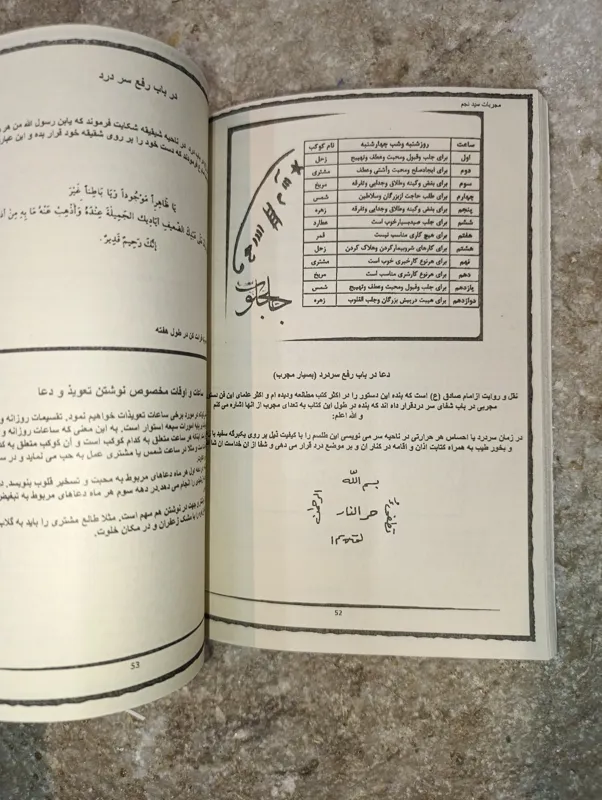 مجربات سید نجم
ساعت روزشنبه وشب چهارشنبه نام کوکب
اول برای جلب وقبول ومحبت وعطف وتهییج زحل
دوم برای ایجادصلح ومحبت وآشتی وعطف مشتری
سوم برای بغض وکینه وطلاق وجدایی وتفرقه مریخ
چهارم برای طلب حاجت ازبزرگان وسلاطین شمس
پنجم برای بغض وکینه وطلاق وجدایی وتفرقه زهره
ششم برای جلب صیدبسیارخوب است عطارد
هفتم برای هیچ کاری مناسب نیست قمر
هشتم برای کارهای شروبیمارکردن وهلاک کردن زحل
نهم برای هرنوع کارخیری خوب است مشتری
دهم برای هرنوع کارشری مناسب است مریخ
یازدهم برای جلب وقبول ومحبت وعطف وتهییج شمس
دوازدهم برای هیبت درپیش بزرگان وجلب القلوب زهره
دعا در باب رفع سردرد (بسیار مجرب)
نقل و روایت ازامام صادق (ع) است که بنده این دستور را در اکثر کتب مطالعه ودیده ام و اکثر علمای این فن
مجربی در باب شفای سر دردقرار داه اند که بنده در طول این کتاب به تعدای مجرب از آنها اشاره می کنم
و الله اعلم:
در زمان سردرد یا احساس هر حرارتی در ناحیه سر می نویسی این طلسم را با کیفیت ذیل بر روی یکبرگه سفید با
و بخور طیب به همراه کتابت اذان و اقامه در کنار ان و بر موضع درد قرار می دهی و شفا از ان خداست ان
بسم الله
الرحمن حر النار
52
در باب رفع سر درد
ناحیه شقیقه شکایت فرموند که یابن رسول الله من هر
که دست خود را بر روی شقیقه خود قرار بده و این
يَا ظَاهِراً مَوْجُوداً وَيَا بَاطِناً غَيْرَ
الضَّعِيفِ أَيَادِيكَ الْجَمِيلَةَ عِنْدَهُ وَأَذْهِبْ عَنْهُ مَا بِهِ مِنْ
إِنَّكَ رَحِيمٌ قَدِيرٌ.
کن در طول هفته
ساعات و اوقات مخصوص نوشتن تعویذ و دعا
در مورد برخی ساعات تعویذات خواهیم نمود. تقسیمات روزانه و
سبعه استوار است. به این معنی که ساعات روزانه و
هر ساعت متعلق به کدام کوکب است و آن کوکب متعلق به
مثلا در ساعت شمس یا مشتری عمل به حب می نماید و در
اول هر ماه دعاهای مربوط به محبت و تسخیر قلوب بنویسد.
را انجام می دهد.در دهه سوم هر ماه دعاهای مربوط به
در نوشتن هم مهم است. مثلا طالع مشتری را باید به گلاب
با مشک زعفران و در مکان خلوت.
53